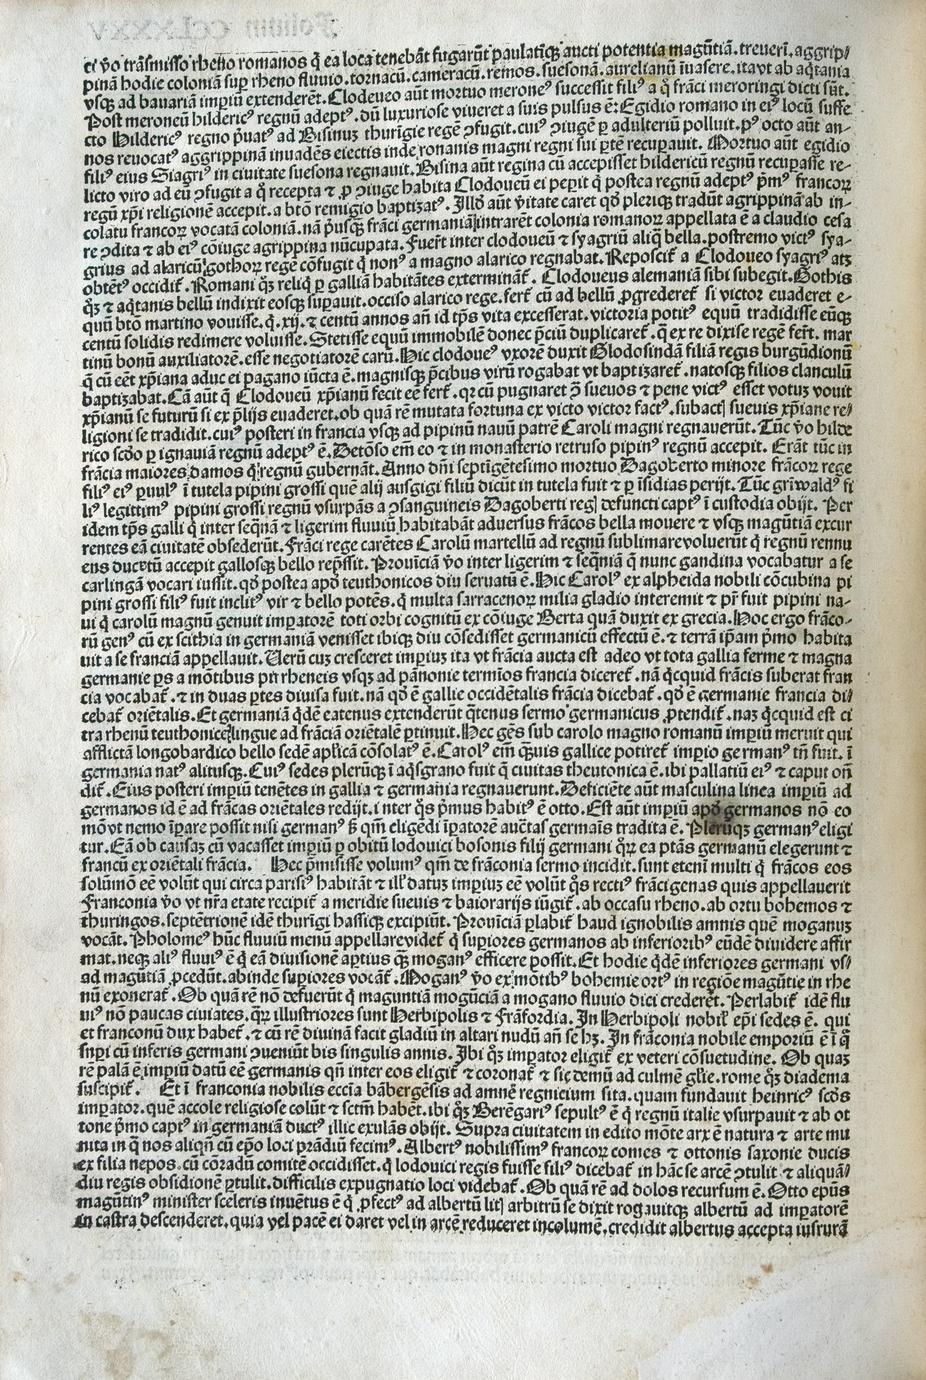 ci vo trãsmisso rheno romanos q̃ ea loca tenebãt fugarũt paulatiq̃ aucti potentia magũtiã. treueri. aggrip/
pinã hodie coloniã sup rheno fluuio. tornacũ. cameracũ. remos. suesonã. aurelianũ ĩuasere. itavt ab aq̃tania
vsq ad bauariam impiũ extenderẽt. Clodeueo aũt mortuo meroneꝰ successit filiꝰ a q̊ frãci meroringi dicti sũt.
Post meroneũ hildericꝰ regnũ adeptꝰ. dũ luxuriose viueret a suis pulsus ẽ: Egidio romano in eiꝰ locũ suffe
cto Hildericꝰ regno p̃uatꝰ ad Bisinuz thurigie regẽ ꝯfugit. cuiꝰ ꝯiugẽ p adulteriũ polluit. pꝰ octo aũt an-
nos reuocatꝰ aggrippinã inuadẽs eiectis inde romanis magni regni sui ptẽ recupauit. Mortuo aũt egidio
filiꝰ eius Siagriꝰ in ciuitate suesona regnauit. Bisina aũt regina cũ accepisset hildericũ regnũ recupasse re-
licto viro ad eũ ꝯfugit a q̊ recepta ⁊ ꝓ ꝯiuge habita Clodoueũ ei pepit q̃ postea regnũ adeptꝰ p̃mꝰ francoꝝ
regũ xp̃i religionẽ accepit. a btõ remigio baptizatꝰ. Illđ aũt ṽitate caret qđ pleriq tradũt agrippinã ab in-
colatu francoꝝ vocatã coloniã. nã p̃usq̃ frãci germaniã intrarẽt colonia romanoꝝ appellata ẽ a claudio cesa
re ꝯdita ⁊ ab eiꝰ cõiuge agrippina nũcupata. Fuert inter clodoueũ ⁊ syagriũ aliq̃ bella. postremo victꝰ sya-
grius ad alaricũ gothoꝝ regẽ cõfugit q̃ nonꝰ a magno alarico regnabat. Reposcit̃ a Clodoueo syagriꝰ atqꝫ
obtẽtꝰ occidit̃. Romani q̊qꝫ reliq̃ p galliã habitãtes exterminãt̃. Clodoueus alemaniã sibi subegit. Gothis
q̊qꝫ ⁊ aq̃tanis bellũ indixit eosqꝫ supauit. occiso alarico rege. fert̃ cũ ad bellũ ꝓgrederet̃ si victor euaderet e-
quũ btõ martino vouisse. q̃. xij. ⁊ centũ annos añ id tp̃s vita excesserat. victoria potitꝰ equũ tradidisse eũqꝫ
centũ solidis redimere voluisse. Stetisse equũ immobilẽ donec p̃ciũ duplicaret̃. q̃ ex re dixise regẽ fert̃. mar
tinũ bonũ auxiliatorẽ. esse negotiatorẽ carũ. Hic clodoueꝰ vxorẽ duxit Glodosindã filiã regis burgũdionũ
q̃ cũ eẽt xp̃iana aduc ei pagano iũcta ẽ. magnisqꝫ p̃cibus virũ rogabat vt baptizaret̃. natosqꝫ filios clanculũ
baptizabat. Cã aũt q̃ Clodoueũ xp̃ianũ fecit eẽ fert̃. qꝛ cũ pugnaret ꝯ̃ sueuos ⁊ pene victꝰ esset votuz vouit
xp̃ianũ se futurũ si ex p̃lijs euaderet. ob quã rẽ mutata fortuna ex victo victor factꝰ. subactꝭ sueuis xp̃iane re/
ligioni se tradidit. cuiꝰ posteri in francia vsqꝫ ad pipinũ nauũ patrẽ Caroli magni regnauerũt. Tũc vo hilde
rico scđo p ignauiã regnũ adeptꝰ ẽ. Detõso em̃ eo ⁊ in monasterio retruso pipinꝰ regnũ accepit. Erãt tũc in
frãcia maiores damos q̃ regnũ gubernãt. Anno dñi septĩgẽtesimo mortuo Dagoberto minore frãcoꝝ rege
filiꝰ eiꝰ puulꝰ ĩ tutela pipini grossi quẽ alij ausgigi filiũ dicũt in tutela fuit ⁊ p ĩsidias perijt. Tũc grĩwaldꝰ fi
liꝰ legittimꝰ pipini grossi regnũ vsurpãs a ꝯsanguineis Dagoberti regꝭ defuncti captꝰ ĩ custodia obijt. Per
idem tp̃s galli q̃ inter seq̃nã ⁊ ligerim fluuiũ habitabãt aduersus frãcos bella mouere ⁊ vsqꝫ magũtiã excur
rentes eã ciuitatẽ obsederũt. Frãci rege carẽtes Carolũ martellũ ad regnũ sublimare voluerũt q̃ regnũ rennu
ens ducatũ accepit gallosqꝫ bello rep̃ssit. Prouĩciã vo inter ligerim ⁊ seq̃niã q̃ nunc gandina vocabatur a se
carlingã vocari iussit. qđ postea apđ teuthonicos diu seruatũ ẽ. Hic Carolꝰ ex alpheida nobili cõcubina pi
pini grossi filiꝰ fuit inclitꝰ vir ⁊ bello potẽs. q̃ multa sarracenoꝝ milia gladio interemit ⁊ pr̃ fuit pipini na-
ui q̃ carolũ magnũ genuit impatorẽ toti orbi cognitũ ex cõiuge Berta quã duxit ex grecia. Hoc ergo frãco-
rũ genꝰ cũ ex scithia in germaniã venisset ibiqꝫ diu cõsedisset germanicũ effectũ ẽ. ⁊ terrã ip̃am p̃mo habita
uit a se franciã appellauit. Uerũ cuz cresceret impiuz ita vt frãcia aucta est adeo vt tota gallia ferme ⁊ magna
germanie ps a mõtibus pir̃heneis vsqꝫ ad pãnonie termĩos francia diceret̃. nã q̃cquid frãcis suberat fran
cia vocabat̃. ⁊ in duas ptes diuisa fuit. nã qđ ẽ gallie occidẽtalis frãcia dicebat̃. qđ ẽ germanie francia di/
cebat̃ oriẽtalis. Et germaniã q̃dẽ eatenus extenderũt q̃tenus sermo germanicus ꝓtendit̃. naz q̃cquid est ci
tra rhenũ teuthonice lingue ad frãciã oriẽtalẽ ptinuit. Hec gẽs sub carolo magno romanũ impiũ meruit qui
afflictã longobardico bello sedẽ aplicã cõsolatꝰ ẽ. Carolꝰ em̃ q̃uis gallice potiret̃ impio germanꝰ tñ fuit. ĩ
germania natꝰ alitusqꝫ. Cuiꝰ sedes plerũqꝫ ĩ aq̃sgrano fuit q̃ ciuitas theutonica ẽ. ibi pallatiũ eiꝰ ⁊ caput oñ
dit̃. Eius posteri impiũ tenẽtes in gallia ⁊ germania regnauerunt. Deficiẽte aũt masculina linea impiũ ad
germanos id ẽ ad frãcas oriẽtales redijt. inter q̊s p̃mus habitꝰ ẽ otto. Est aũt impiũ apđ germanos nõ eo
mõ vt nemo ĩpare possit nisi germanꝰ ß qm̃ eligẽdi ĩpatorẽ auctas germaĩs tradita ẽ. Plerũqꝫ germanꝰ eligi
tur. Eã ob causaz cũ vacasset impiũ p obitũ lodouici bosonis filij germani q̊rꝝ ea ptãs germanũ elegerunt ⁊
francũ ex oriẽtali frãcia. Hec p̃misisse volumꝰ qm̃ de frãconia sermo incidit. sunt etenĩ multi q̃ frãcos eos
solũmõ eẽ volũt qui circa parisiꝰ habitãt ⁊ ill datuz impiuz eẽ volũt q̊s rectiꝰ frãcigenas quis appellauerit
Franconia vo vt nr̃a etate recipit̃ a meridie sueuis ⁊ baiorarijs iũgit̃. ab occasu rheno. ab ortu bohemos ⁊
thuringos. septẽtrionẽ idẽ thurĩgi hassiqꝫ excipiũt. Prouĩciã plabit̃ haud ignobilis amnis quẽ moganuz
vocãt. Pholomeꝰ hũc fluuiũ menũ appellare videt̃ q̃ supiores germanos ab inferioribꝰ eũdẽ diuidere affir
mat. neqꝫ aliꝰ fluuiꝰ ẽ q̃ eã diuisionẽ aptius q̃ moganꝰ efficere possit. Et hodie q̃dẽ inferiores germani vs/
ad magũtiã ꝓcedũt. abinde supiores vocãt̃. Moganꝰ vo ex mõtibꝰ bohemie ortꝰ in regiõe magũtie in rhe
nũ exonerat̃. Ob quã rẽ nõ defuerũt q̃ maguntiã mogũciã a mogano fluuio dici crederẽt. Perlabit̃ idẽ flu
uiꝰ nõ paucas ciuiates. q̊ꝝ illustriores sunt Herbipolis ⁊ Frãfordia. In Herbipoli nobil ep̃i sedes ẽ. qui
et franconũ dux habet̃. ⁊ cũ rẽ diuinã facit gladiũ in altari nudũ añ se hꝫ. In frãconia nobile emporiũ ẽ ĩ q̊
supi cũ inferis germani ꝯueniũt bis singulis annis. Ibi q̊qꝫ impator eligit̃ ex veteri cõsuetudine. Ob quaz
rẽ palã ẽ impiũ datũ eẽ germanis qñ inter eos eligit̃ ⁊ coronat̃ ⁊ sic demũ ad culmẽ gl̃ie. rome q̊qꝫ diadema
suscipit̃. Et ĩ franconia nobilis eccĩa bãbergẽsis ad amnẽ regnicium sita. quam fundauit heinricꝰ scđs
impator. quẽ accole religiose colũt ⁊ sctm̃ habẽt. ibi q̊qꝫ Berẽgariꝰ sepultꝰ ẽ q̃ regnũ italie vsurpauit ⁊ ab ot
tone p̃mo captꝰ in germaniã ductꝰ illic exulãs obijt. Supra ciuitatem in edito mõte arx ẽ natura ⁊ arte mu
nita in q̃ nos aliqñ cũ ep̃o loci prãdiũ fecimꝰ. Albertꝰ nobilissimꝰ francoꝝ comes ⁊ ottonis saxonie ducis
ex filia nepos. cũ cõradũ comitẽ occidisset. q̃ lodouici regis fuisse filiꝰ dicebat̃ in hãc se arcẽ ꝯtulit ⁊ aliquã/
diu regis obsidionẽ ptulit. difficilis expugnatio loci videbat̃. Ob quã rẽ ad dolos recursum ẽ. Otto epũs
magũtinꝰ minister sceleris inuẽtus ẽ q̃ ꝓfectꝰ ad albertũ litꝭ arbitrũ se dixit rogauitqꝫ albertũ ad impatorẽ
in castra descenderet. quia vel pacẽ ei daret vel in arcẽ reduceret incolumẽ. credidit albertus accepta iusiurã